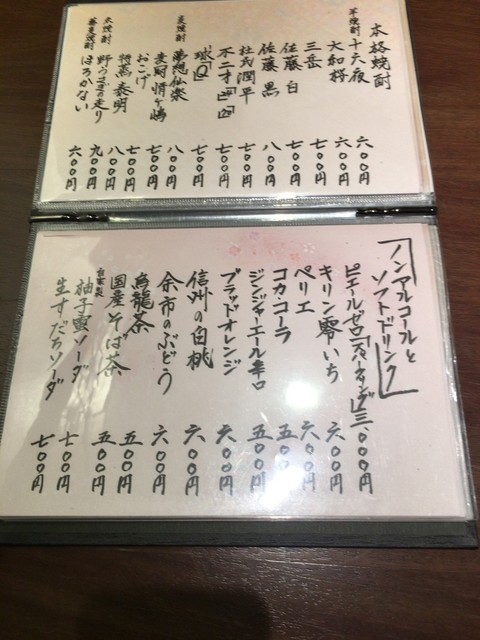 本格焼酎
芋焼酎
十六夜 六〇〇円
大和桜 六〇〇円
三岳 七〇〇円
佐藤 白 七〇〇円
佐藤 黒 八〇〇円
杜氏潤平 七〇〇円
不二才 七〇〇円
七〇〇円
麦焼酎
夢想仙楽 八〇〇円
麦
七〇〇円
おこげ 七〇〇円
米焼酎
八〇〇円
野うさぎの走り 九〇〇円
蕎麦焼酎
ほろかない 六〇〇円
ノンアルコールと
ソフトドリンク
ピエールゼロ「スパーティング」三、〇〇〇円
キリン零いち 六〇〇円
ペリエ 六〇〇円
コカ・コーラ 五〇〇円
ジンジャーエール辛口 五〇〇円
ブラッドオレンジ 六〇〇円
信州の白桃 六〇〇円
余市のぶどう 六〇〇円
烏龍茶 五〇〇円
国産そば茶 五〇〇円
自家製
柚子蜜ソーダ 七〇〇円
生すだちソーダ 七〇〇円